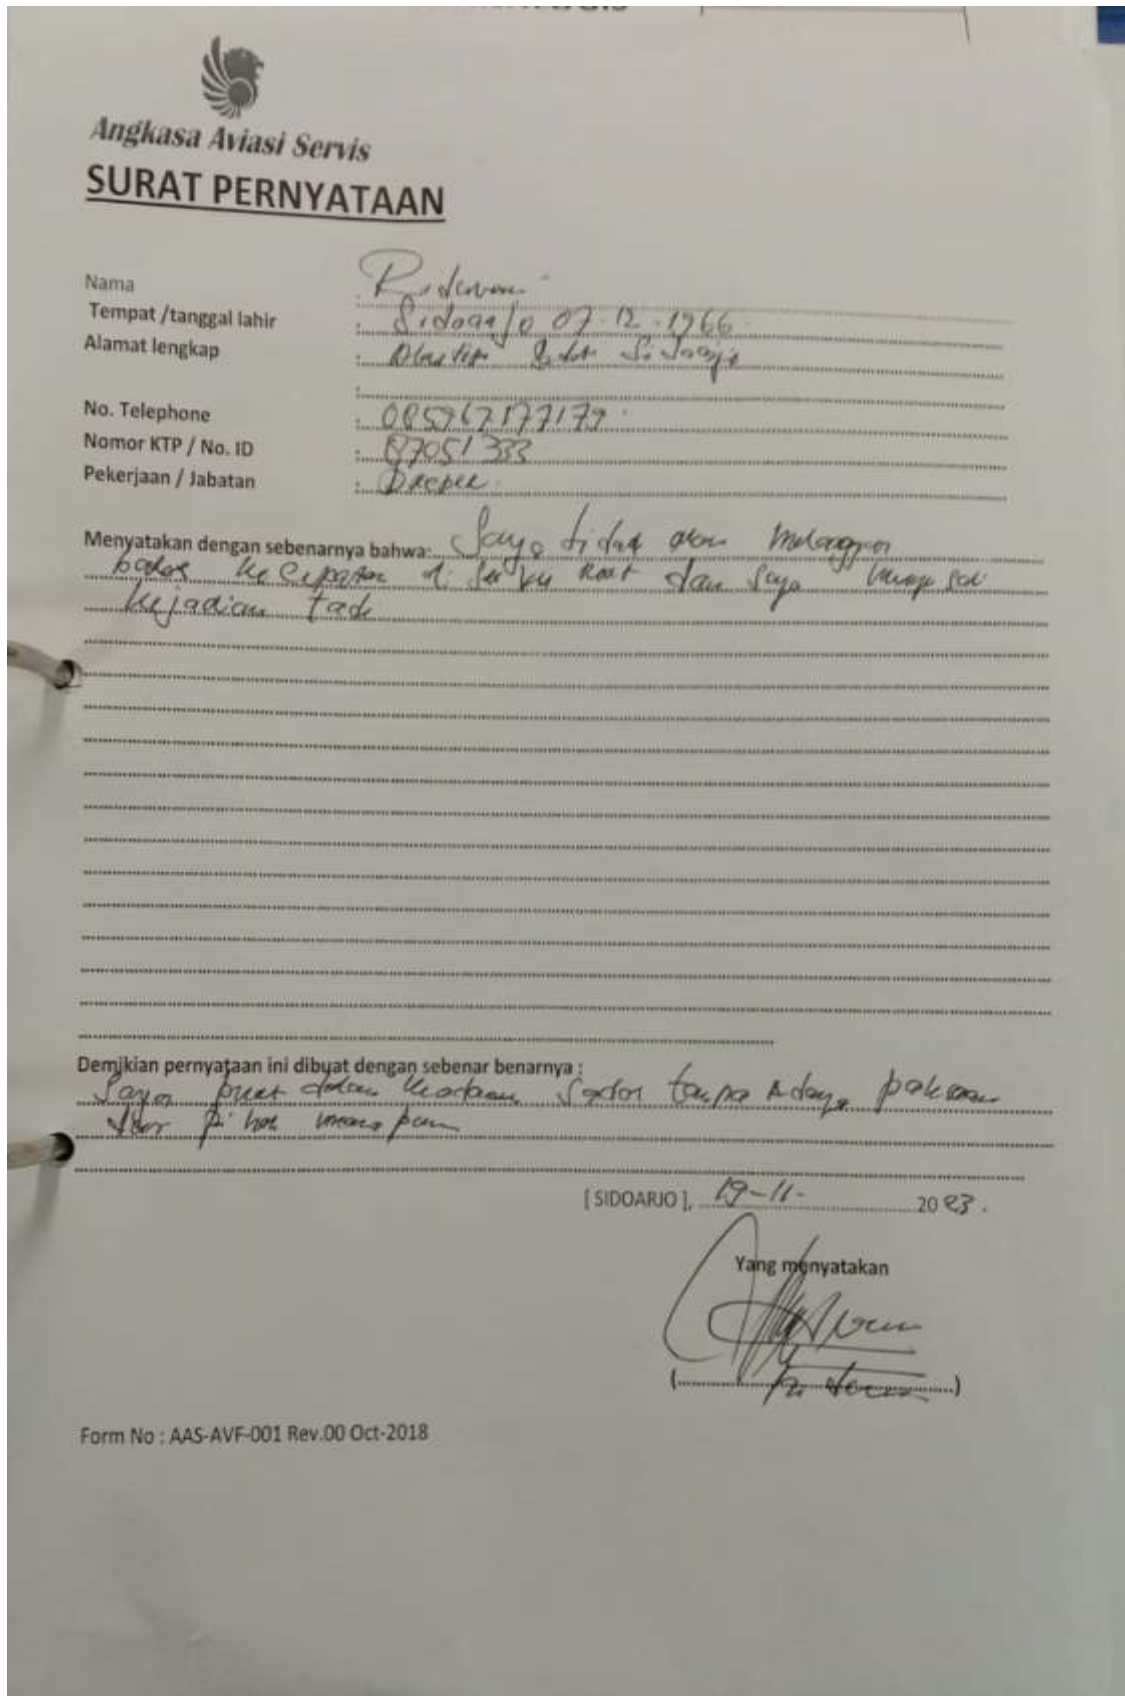 Angkasa Aviasi Servis
SURAT PERNYATAAN
Nama
: Ridwan
Tempat /tanggal lahir : Sidoarjo 07-12-1966
Alamat lengkap : Sidoarjo
:
No. Telephone : 085967177179
Nomor KTP / No. ID : 87051333
Pekerjaan / Jabatan :
Menyatakan dengan sebenarnya bahwa: Saya tidak akan
batas kecepatan di dan Saya
kejadian tadi
Demikian pernyataan ini dibuat dengan sebenar benarnya :
Saya buat dalam Sadar tanpa Adanya paksaan
pihak mana pun
[ SIDOARJO ], 19-11- 2023.
Yang menyatakan
Form No : AAS-AVF-001 Rev.00 Oct-2018